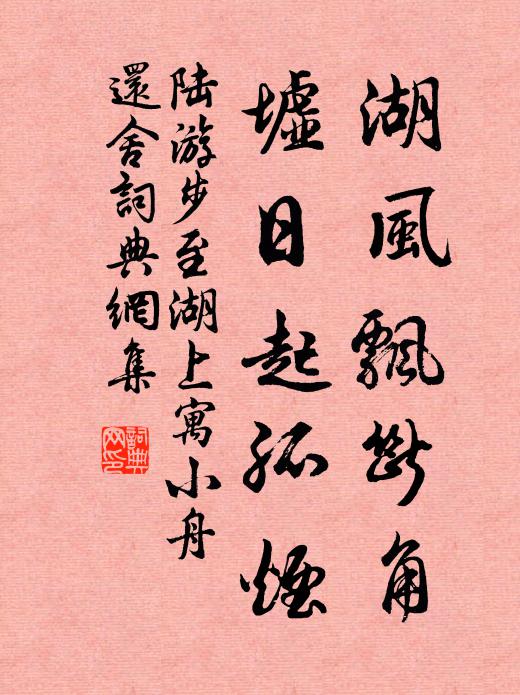 湖風飄斷角
墟日起孤煙
陆游步至湖上寓小舟
還舍詞典網集
詞典網印